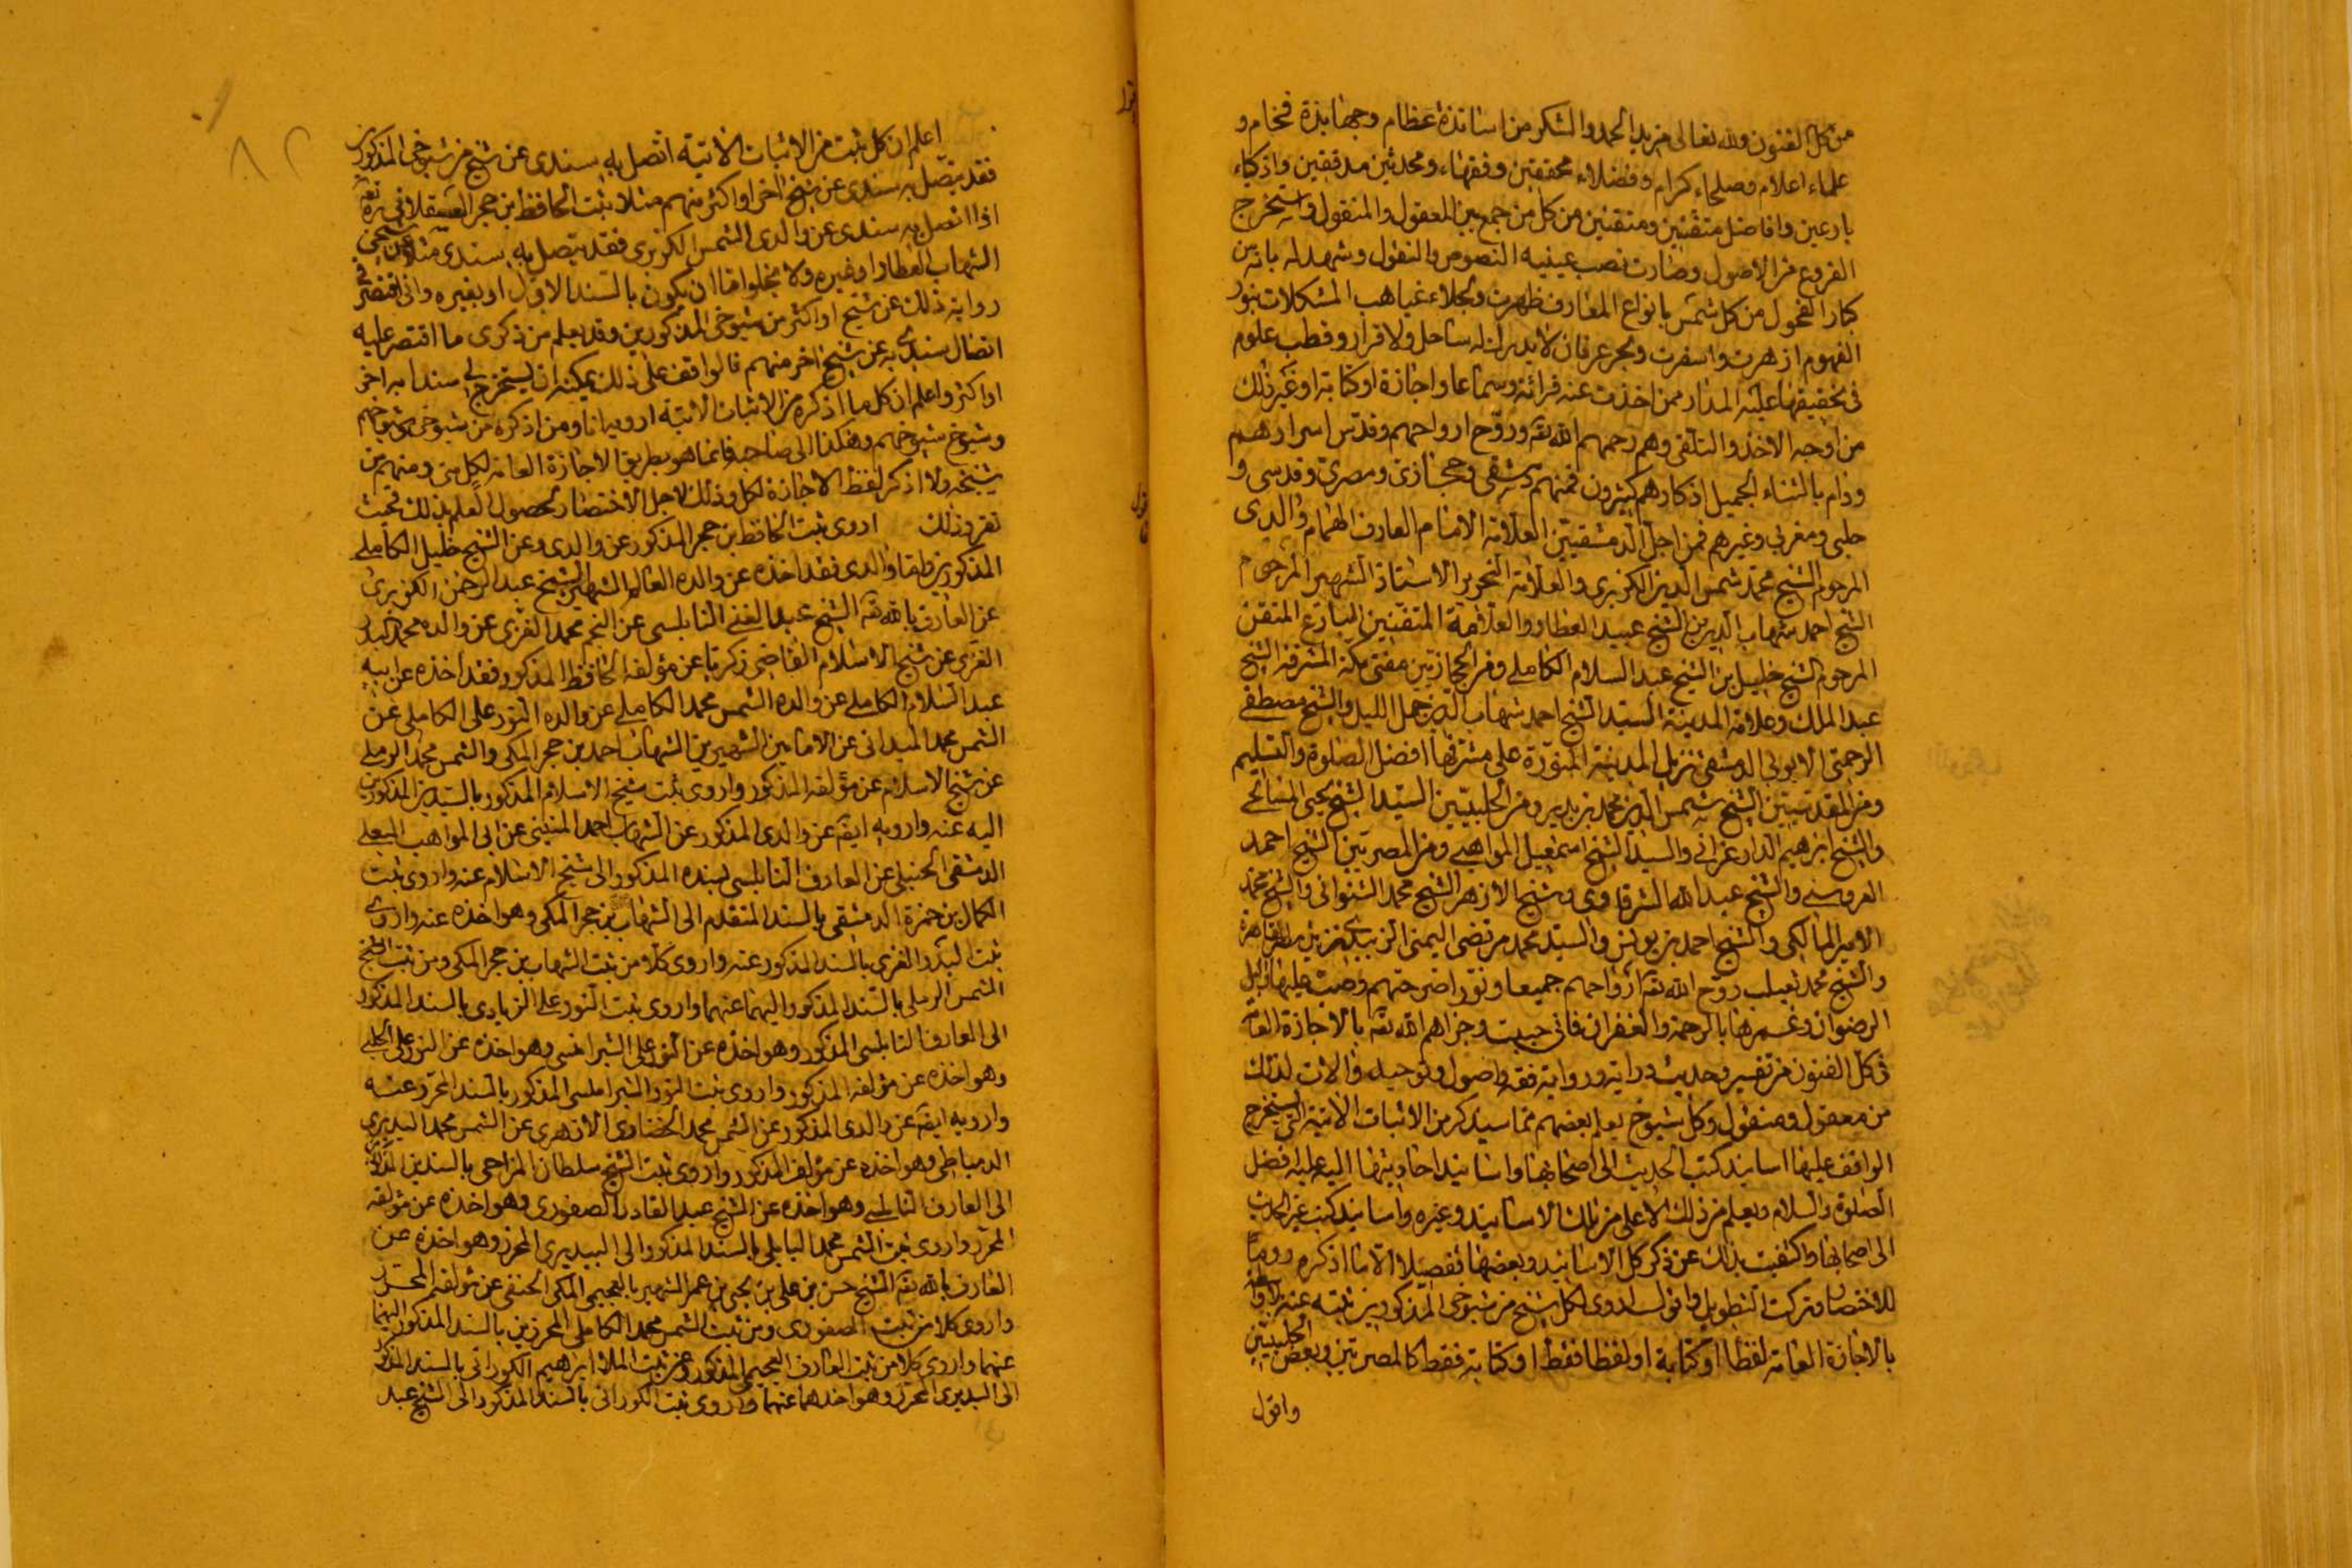 من كل الفنون ولله تعالى مزيد الحمد والشكر من اساتذة عظام وجهابذة فخام و
علماء اعلام وصلحاء كرام وفضلاء محققين وفقهاء ومحدثين مدققين واذكياء
بارعين وافاضل متفننين ومتقنين من كل من جمع بين المعقول والمنقول واستخرج
الفروع من الاصول وصارت نصب عينيه النصوص والنقول وشهد له بانه من
كبار الفحول من كل شمس بانواع المعارف ظهرت ولجلاء غياهب المشكلات بنور
الفهوم ازهرت واسفرت وبحر عرفان لا يدرك له ساحل ولا قرار وقطب علوم
في تحقيقها عليه المدار ممن اخذت عنه قرائة وسماعا واجازة او كتابة او غير ذلك
من اوجه الاخذ والتلقي وهم رحمهم الله تعه وروّح ارواحهم وقدس اسرارهم
ودام بالثناء الجميل اذكارهم كثيرون فمنهم دمشقي وحجازي ومصري وقدسي و
حلبي ومغربي وغيرهم فمن اجل الدمشقيين العلامة الامام العارف الهمام والدي
المرحوم الشيخ محمد شمس الدين الكزبري والعلامة النحرير الاستاذ الشهير المرحوم
الشيخ احمد شهاب الدين بن الشيخ عبيد العطار والعلامة المتفنن البارع المتقن
المرحوم الشيخ خليل بن الشيخ عبد السلام الكاملي ومن الحجازيين مفتي مكة المشرفة الشيخ
عبد الملك وعلامة المدينة السيد الشيخ احمد شهاب الدين جمل الليل والشيخ مصطفى
الرحمتي الايوبي الدمشقي نزيل المدينة المنورة على مشرفها افضل الصلوة والتسليم
ومن المقدسيين الشيخ شمس الدين محمد بن بدير ومن الحلبيين السيد الشيخ يحيى المسالخي
والشيخ ابرهيم الدارعزاني والسيد الشيخ اسمعيل المواهبي ومن المصريين الشيخ احمد
العروسي والشيخ عبد الله الشرقاوي وشيخ الازهر الشيخ محمد الشنواني والشيخ محمد
الامير المالكي والشيخ احمد بن يونس والسيد محمد مرتضى اليمني الزبيدي نزيل القاهرة
والشيخ محمد ثعيلب روّح الله تعه ارواحهم جميعا ونوّر اضرحتهم وصب عليها زلال
الرضوان وغمرها بالرحمة والغفران فاني وجزاهم الله تعه بالاجازة العامة
في كل الفنون من تفسير وحديث دراية ورواية وفقه واصول وتوحيد والات لذلك
من معقول ومنقول وكل شيوخ يعلم بعضهم مما سيذكر من الاثبات الاتية التي يستخرج
الواقف عليها اسانيد كتب الحديث الى اصحابها واسانيد احاديثها اليه عليه افضل
الصلوة والسلام ويعلم من ذلك الاعلى من تلك الاسانيد وغيره واسانيد كتب غير الحديث
الى اصحابها واكتفيت بذلك عن ذكر كل الاسانيد وبعضها تفصيلا الا ما اذكره روما
للاختصار وتركت التطويل واقول اروي لكل شيخ من شيوخي المذكورين ثبته عنه بلا واسطة
بالاجازة العامة لفظا او كتابة او لفظا فقط او كتابة فقط كالمصريين وبعض الحلبيين
واقول
اعلم ان كل ثبت من الاثبات الاتية اتصل به سندي عن شيخ من شيوخي المذكورين
فقد يتصل به سندي عن شيخ اخر او اكثر منهم مثلا ثبت الحافظ ابن حجر العسقلاني
اذا اتصل به سندي عن والدي الشمس الكزبري فقد يتصل به سندي مثلا عن شيخي
الشهاب العطار او غيره ولا يخلو اما ان يكون بالسند الاول او بغيره واني اقتصر في
رواية ذلك عن شيخ او اكثر من شيوخي المذكورين وقد يعلم من ذكري ما اقتصر عليه
اتصال سندي به عن شيخ اخر منهم فالواقف على ذلك يمكنه ان يستخرج لي سندا به اخر
او اكثر واعلم ان كل ما اذكره من الاثبات الاتية ارويه انا ومن اذكره من شيوخي وشيوخهم
وشيوخ شيوخهم وهكذا الى صاحبه فانما هو بطريق الاجازة العامة لكل مني ومنهم من
شيخه ولا اذكر لفظ الاجازة لكل وذلك لاجل الاختصار لحصول العلم بذلك حيث
تقرر ذلك اروي ثبت الحافظ بن حجر المذكور عن والدي وعن الشيخ خليل الكاملي
المذكورين فاما والدي فقد اخذه عن والده العالم الشهير الشيخ عبد الرحمن الكزبري
عن العارف بالله تعه الشيخ عبد الغني النابلسي عن النجم محمد الغزي عن والده محمد البدر
الغزي عن شيخ الاسلام القاضي زكريا عن مؤلفه الحافظ المذكور فقد اخذه عن ابيه
عبد السلام الكاملي عن والده الشمس محمد الكاملي عن والده النور علي الكاملي عن
الشمس محمد الميداني عن الامامين الشهيرين الشهاب احمد بن حجر المكي والشمس محمد الرملي
عن شيخ الاسلام عن مؤلفه المذكور واروي ثبت شيخ الاسلام المذكور بالسندين المذكورين
اليه عنه وارويه ايضه عن والدي المذكور عن الشهاب احمد المنيني عن ابي المواهب البعلي
الدمشقي الحنبلي عن العارف النابلسي بسنده المذكور الى شيخ الاسلام عنه واروي ثبت
الكمال بن حمزة الدمشقي بالسند المتقدم الى الشهاب بن حجر المكي وهو اخذه عنه واروي
ثبت البدر الغزي بالسند المذكور عنه واروي كلا من ثبت الشهاب بن حجر المكي ومن ثبت الشيخ
الشمس الرملي بالسند المذكور اليهما عنهما واروي ثبت النور علي الزيادي بالسند المذكور
الى العارف النابلسي المذكور وهو اخذه عن النور علي الشبراملسي وهو اخذه عن النور علي الحلبي
وهو اخذه عن مؤلفه المذكور واروي ثبت النور الشبراملسي المذكور بالسند المحرر عنه
وارويه ايضه عن والدي المذكور عن الشمس محمد الحفناوي الازهري عن الشمس محمد البديري
الدمياطي وهو اخذه عن مؤلفه المذكور واروي ثبت الشيخ سلطان المزاحي بالسندين
الى العارف النابلسي وهو اخذه عن الشيخ عبد القادر الصفوري وهو اخذه عن مؤلفه
المحرر واروي ثبت الشمس محمد البابلي بالسند المذكور الى البديري المحرر وهو اخذه عن
العارف بالله تعه الشيخ حسن بن علي بن يحيى بن عمر الشهير بالعجيمي المكي الحنفي عن مؤلفه المحرر
واروي كلا من ثبت الصفوري ومن ثبت الشمس محمد الكاملي المحررين بالسند المذكور اليهما
عنهما واروي كلا من ثبت العارف العجيمي المذكور ومن ثبت الملا ابراهيم الكوراني بالسند المذكور
الى البديري المحرر وهو اخذهما عنهما واروي ثبت الكوراني بالسند المذكور الى الشيخ عبد